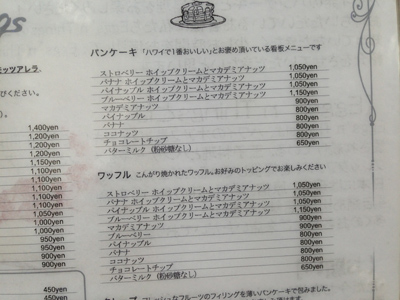 gs
ミッツアレラ
びください。
1,400yen
1,200yen
1,200yen
1,150yen
1,100yen
1,100yen
1,100yen
1,100yen
1,050yen
1,000yen
950yen
950yen
900yen
450yen
450yen
パンケーキ 「ハワイで1番おいしい」とお褒め頂いている看板メニューです
ストロベリー ホイップクリームとマカデミアナッツ 1,050yen
バナナ ホイップクリームとマカデミアナッツ 1,050yen
パイナップル ホイップクリームとマカデミアナッツ 1,050yen
ブルーベリー ホイップクリームとマカデミアナッツ 1,150yen
マカデミアナッツ 900yen
パイナップル 800yen
バナナ 800yen
ココナッツ 800yen
チョコレートチップ 800yen
バターミルク (粉砂糖なし) 650yen
ワッフル こんがり焼かれたワッフル。お好みのトッピングでお楽しみください
ストロベリー ホイップクリームとマカデミアナッツ 1,050yen
バナナ ホイップクリームとマカデミアナッツ 1,050yen
パイナップル ホイップクリームとマカデミアナッツ 1,050yen
ブルーベリー ホイップクリームとマカデミアナッツ 1,150yen
マカデミアナッツ 900yen
ブルーベリー 900yen
パイナップル 800yen
バナナ 800yen
ココナッツ 800yen
チョコレートチップ 800yen
バターミルク (粉砂糖なし) 650yen
フレッシュなフルーツのフィリングを薄いパンケーキで包みました。